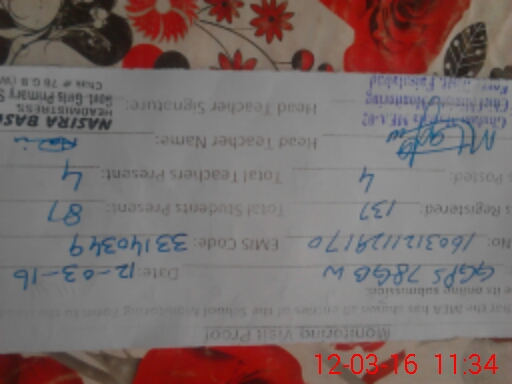 Monitoring Visit Proof
that the MEA has shown all entries of the School Monitoring Form to the
its online submission.
GGPS 78GB W Date: 12-03-16
No: 1603121129170 EMIS Code: 33140349
s Registered: 137 Total Students Present: 87
s Posted: 4 Total Teachers Present: 4
Head Teacher Name:
Head Teacher Signature:
NASIRA BAS
HEADMISTRESS
Govt. Girls Primary S
Chak # 78 G.B (W
12-03-16 11:34